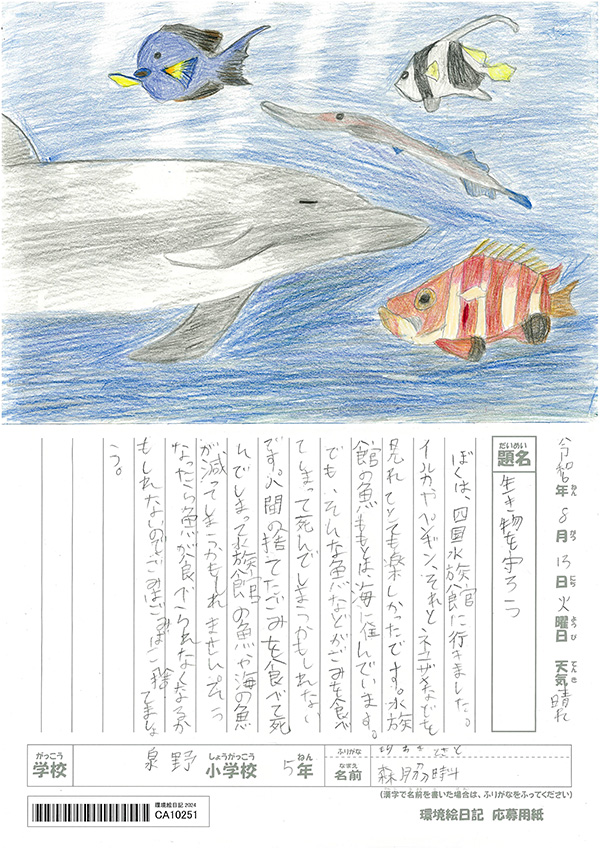 令和年 8月 13日 火曜日 天気 晴れ
ねん がつ にち ようび てんき
だいめい
題名 生き物を守ろう
ぼくは、四国水族館に行きました。
イルカやペンギン、それとネコザメなどを
見れてとても楽しかったです。水族
館の魚ももとは、海に住んでいます。
でも、そんな魚などがごみを食べ
てしまって死んでしまうかもしれない
です。人間の捨てたごみを食べて死
んでしまって水族館の魚や海の魚
が減ってしまうかもしれません。そう
なったら魚が食べられなくなるか
もしれないのでごみはごみばこ捨てましょ
う。
がっこう しょうがっこう ねん ふりがな
学校 泉野 小学校 5年 なまえ 名前
(漢字で名前を書いた場合は、ふりがなをふってください)
環境絵日記 2024
CA10251
環境絵日記 応募用紙